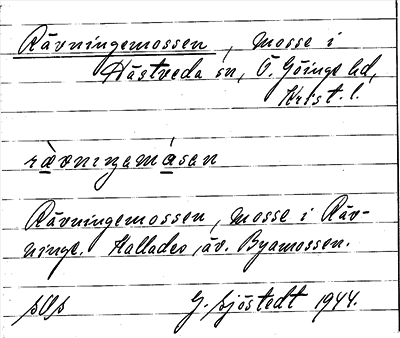 Rävningemossen, mosse i
Hästveda sn, Ö. Göinge hd,
Krist. l.
rævniŋemåsen
Rävningemossen, mosse i Räv-
ninge. Kallades äv. Byamossen.
G. Sjöstedt 1944.